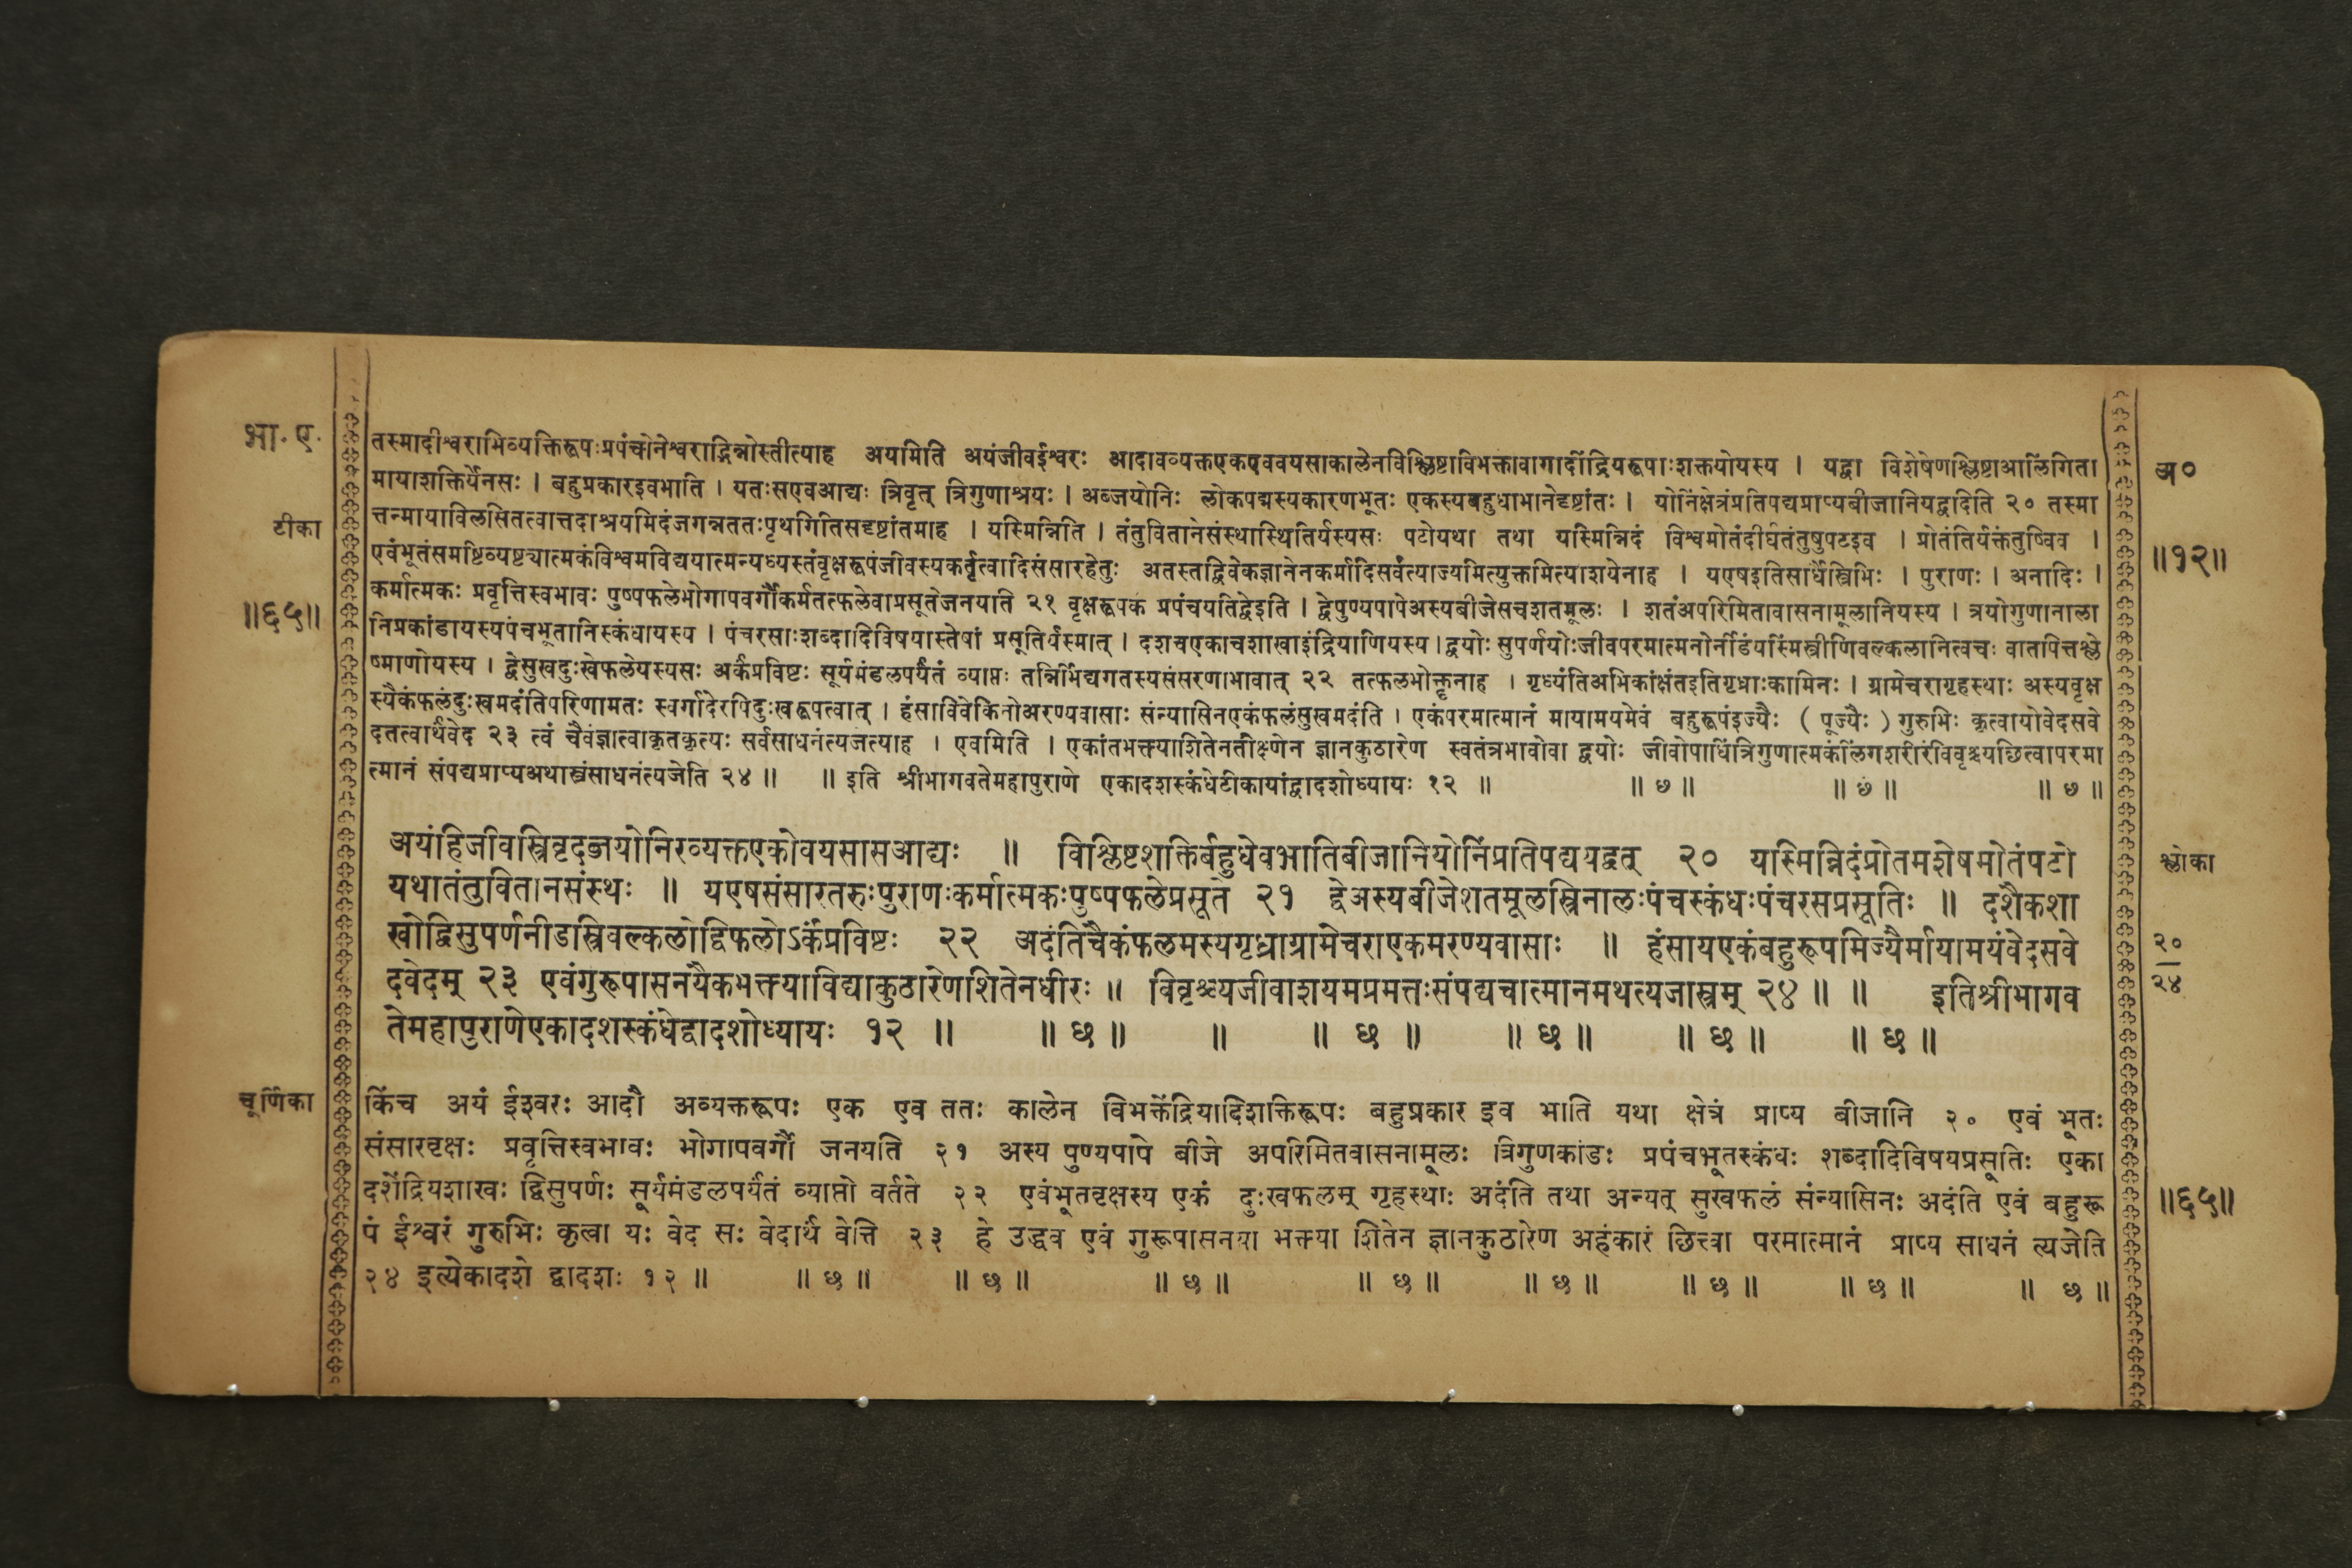 भा. ए.
तस्मादीश्वराभिव्यक्तिरूपःप्रपंचोनेश्वराद्भिन्नोस्तीत्याह अयमिति अयंजीवईश्वरः आदावव्यक्तएकएववयसाकालेनविश्लिष्टाविभक्तावागादींद्रियरूपाःशक्तयोयस्य । यद्वा विशेषेणश्लिष्टाआलिंगिता
अ०
मायाशक्तिर्येनसः । बहुप्रकारइवभाति । यतःसएवआद्यः त्रिवृत् त्रिगुणाश्रयः । अब्जयोनिः लोकपद्मस्यकारणभूतः एकस्यबहुधाभानेदृष्टांतः । योनिंक्षेत्रंप्रतिपद्यप्राप्यबीजानियद्वदिति २० तस्मा
टीका
त्तन्मायाविलसितत्वात्तदाश्रयमिदंजगन्नततःपृथगितिसदृष्टांतमाह । यस्मिन्निति । तंतुवितानेसंस्थास्थितिर्यस्यसः पटोयथा तथा यस्मिन्निदं विश्वमोतंदीर्घतंतुषुपटइव । प्रोतंतिर्यक्तंतुष्विव ।
॥१२॥
एवंभूतंसमष्टिव्यष्ट्यात्मकंविश्वमविद्ययात्मन्यध्यस्तंवृक्षरूपंजीवस्यकर्तृत्वादिसंसारहेतुः अतस्तद्विवेकज्ञानेनकर्मादिसर्वंत्याज्यमित्युक्तमित्याशयेनाह । यएषइतिसार्धैस्त्रिभिः । पुराणः । अनादिः ।
॥६५॥
कर्मात्मकः प्रवृत्तिस्वभावः पुष्पफलेभोगापवर्गौकर्मतत्फलेवाप्रसूतेजनयति २१ वृक्षरूपकं प्रपंचयतिद्वेइति । द्वेपुण्यपापेअस्यबीजेसचशतमूलः । शतंअपरिमितावासनामूलानियस्य । त्रयोगुणानाला
निप्रकांडायस्यपंचभूतानिस्कंधायस्य । पंचरसाःशब्दादिविषयास्तेषां प्रसूतिर्यस्मात् । दशचएकाचशाखाइंद्रियाणियस्य । द्वयोः सुपर्णयोःजीवपरमात्मनोर्नीडंयस्मिंस्त्रीणिवल्कलानित्वचः वातपित्तश्ले
ष्माणोयस्य । द्वेसुखदुःखेफलेयस्यसः अर्कंप्रविष्टः सूर्यमंडलपर्यंतं व्याप्तः तन्निर्भिद्यगतस्यसंसरणाभावात् २२ तत्फलभोक्तॄनाह । गृध्यंतिअभिकांक्षंतइतिगृध्राःकामिनः । ग्रामेचरागृहस्थाः अस्यवृक्ष
स्यैकंफलंदुःखमदंतिपरिणामतः स्वर्गादेरपिदुःखरूपत्वात् । हंसाविवेकिनोअरण्यवासाः संन्यासिनएकंफलंसुखमदंति । एकंपरमात्मानं मायामयमेवं बहुरूपंइज्यैः ( पूज्यैः ) गुरुभिः कृत्वायोवेदसवे
दतत्वार्थंवेद २३ त्वं चैवंज्ञात्वाकृतकृत्यः सर्वसाधनंत्यजेत्याह । एवमिति । एकांतभक्त्याशितेनतीक्ष्णेन ज्ञानकुठारेण स्वतंत्रभावोवा द्वयोः जीवोपाधिंत्रिगुणात्मकंलिंगशरीरंविवृश्च्यछित्वापरमा
त्मानं संपद्यप्राप्यअथास्त्रंसाधनंत्यजेति २४ ॥ ॥ इति श्रीभागवतेमहापुराणे एकादशस्कंधेटीकायांद्वादशोध्यायः १२ ॥ ॥ छ ॥ ॥ छ ॥ ॥ छ ॥
अयंहिजीवस्त्रिवृदब्जयोनिरव्यक्तएकोवयसासआद्यः ॥ विश्लिष्टशक्तिर्बहुधेवभातिबीजानियोनिंप्रतिपद्ययद्वत् २० यस्मिन्निदंप्रोतमशेषमोतंपटो
श्लोका
यथातंतुवितानसंस्थः ॥ यएषसंसारतरुःपुराणःकर्मात्मकःपुष्पफलेप्रसूते २१ द्वेअस्यबीजेशतमूलस्त्रिनालःपंचस्कंधःपंचरसप्रसूतिः ॥ दशैकशा
खोद्विसुपर्णनीडस्त्रिवल्कलोद्विफलोऽर्कंप्रविष्टः २२ अदंतिचैकंफलमस्यगृध्राग्रामेचराएकमरण्यवासाः ॥ हंसायएकंबहुरूपमिज्यैर्मायामयंवेदसवे
२०
२४
दवेदम् २३ एवंगुरूपासनयैकभक्त्याविद्याकुठारेणशितेनधीरः ॥ विवृश्च्यजीवाशयमप्रमत्तःसंपद्यचात्मानमथत्यजास्त्रम् २४ ॥ ॥ इतिश्रीभागव
तेमहापुराणेएकादशस्कंधेद्वादशोध्यायः १२ ॥ ॥ छ ॥ ॥ ॥ छ ॥ ॥ छ ॥ ॥ छ ॥ ॥ छ ॥
चूर्णिका
किंच अयं ईश्वरः आदौ अव्यक्तरूपः एक एव ततः कालेन विभक्तेंद्रियादिशक्तिरूपः बहुप्रकार इव भाति यथा क्षेत्रं प्राप्य बीजानि २० एवं भूतः
संसारवृक्षः प्रवृत्तिस्वभावः भोगापवर्गौ जनयति २१ अस्य पुण्यपापे बीजे अपरिमितवासनामूलः त्रिगुणकांडः प्रपंचभूतस्कंधः शब्दादिविषयप्रसूतिः एका
दशेंद्रियशाखः द्विसुपर्णः सूर्यमंडलपर्यंतं व्याप्तो वर्तते २२ एवंभूतवृक्षस्य एकं दुःखफलम् गृहस्थाः अदंति तथा अन्यत् सुखफलं संन्यासिनः अदंति एवं बहुरू
॥६५॥
पं ईश्वरं गुरुभिः कृत्वा यः वेद सः वेदार्थं वेत्ति २३ हे उद्धव एवं गुरूपासनया भक्त्या शितेन ज्ञानकुठारेण अहंकारं छित्त्वा परमात्मानं प्राप्य साधनं त्यजेति
२४ इत्येकादशे द्वादशः १२ ॥ ॥ छ ॥ ॥ छ ॥ ॥ छ ॥ ॥ छ ॥ ॥ छ ॥ ॥ छ ॥ ॥ छ ॥ ॥ छ ॥